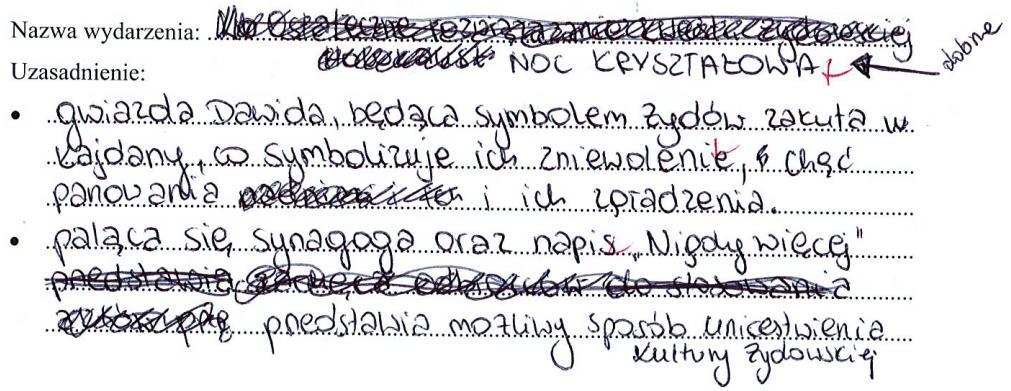 Nazwa wydarzenia:
dobre
Uzasadnienie: NOC KRYSZTAŁOWA
• gwiazda Dawida, będąca symbolem Żydów zakuta w
kajdany, co symbolizuje ich zniewolenie, chęć
panowania i ich
• paląca się synagoga oraz napis „Nigdy więcej”
przedstawia
przedstawia możliwy sposób unicestwienia
kultury żydowskiej